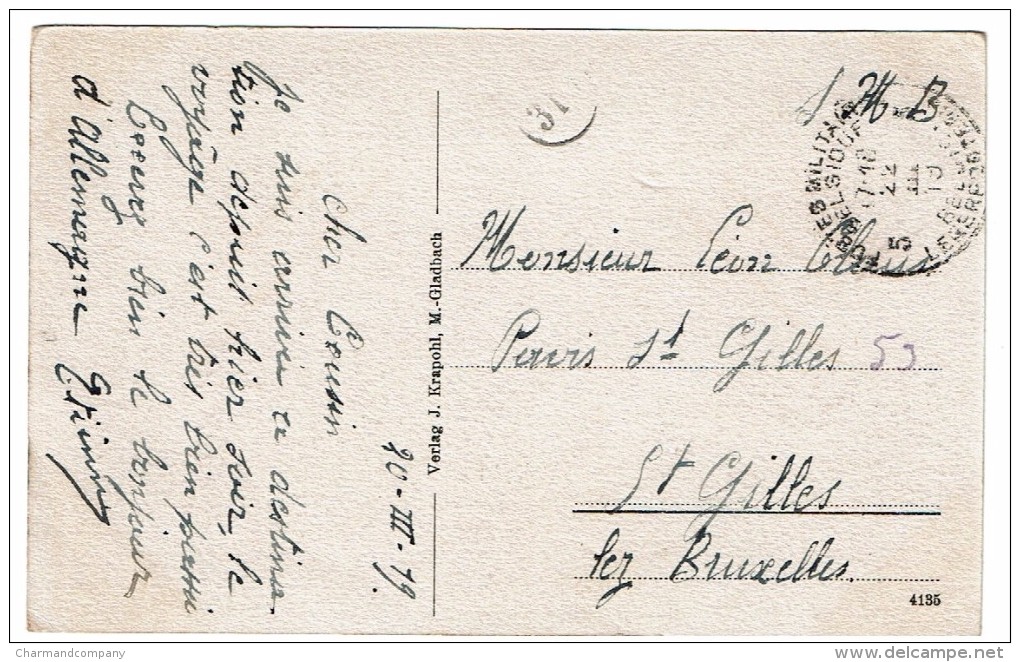 20-III-19.
cher Cousin
Je suis arrivé a destina-
tion depuis hier soir, le
voyage c'est très bien passé
Recevez bien le bonjour
d'Allemagne
Verlag J. Krapohl, M.-Gladbach
31
S M B
POSTES MILITAIRES
BELGIQUE
17-18
22
III
19
5
Monsieur Léon
Parvis St Gilles 53
St Gilles
lez Bruxelles.
4135
Charmandcompany
delcampe.net